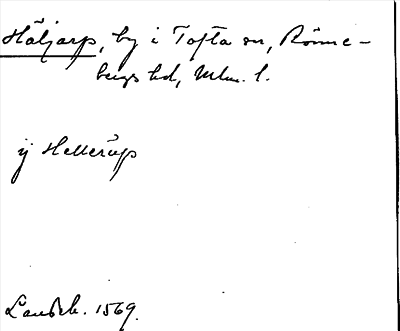 Häljarp, by i Tofta sn, Rönne-
bergs hd, Mlm. l.
ij Hellerüp
Landsk. 1569.